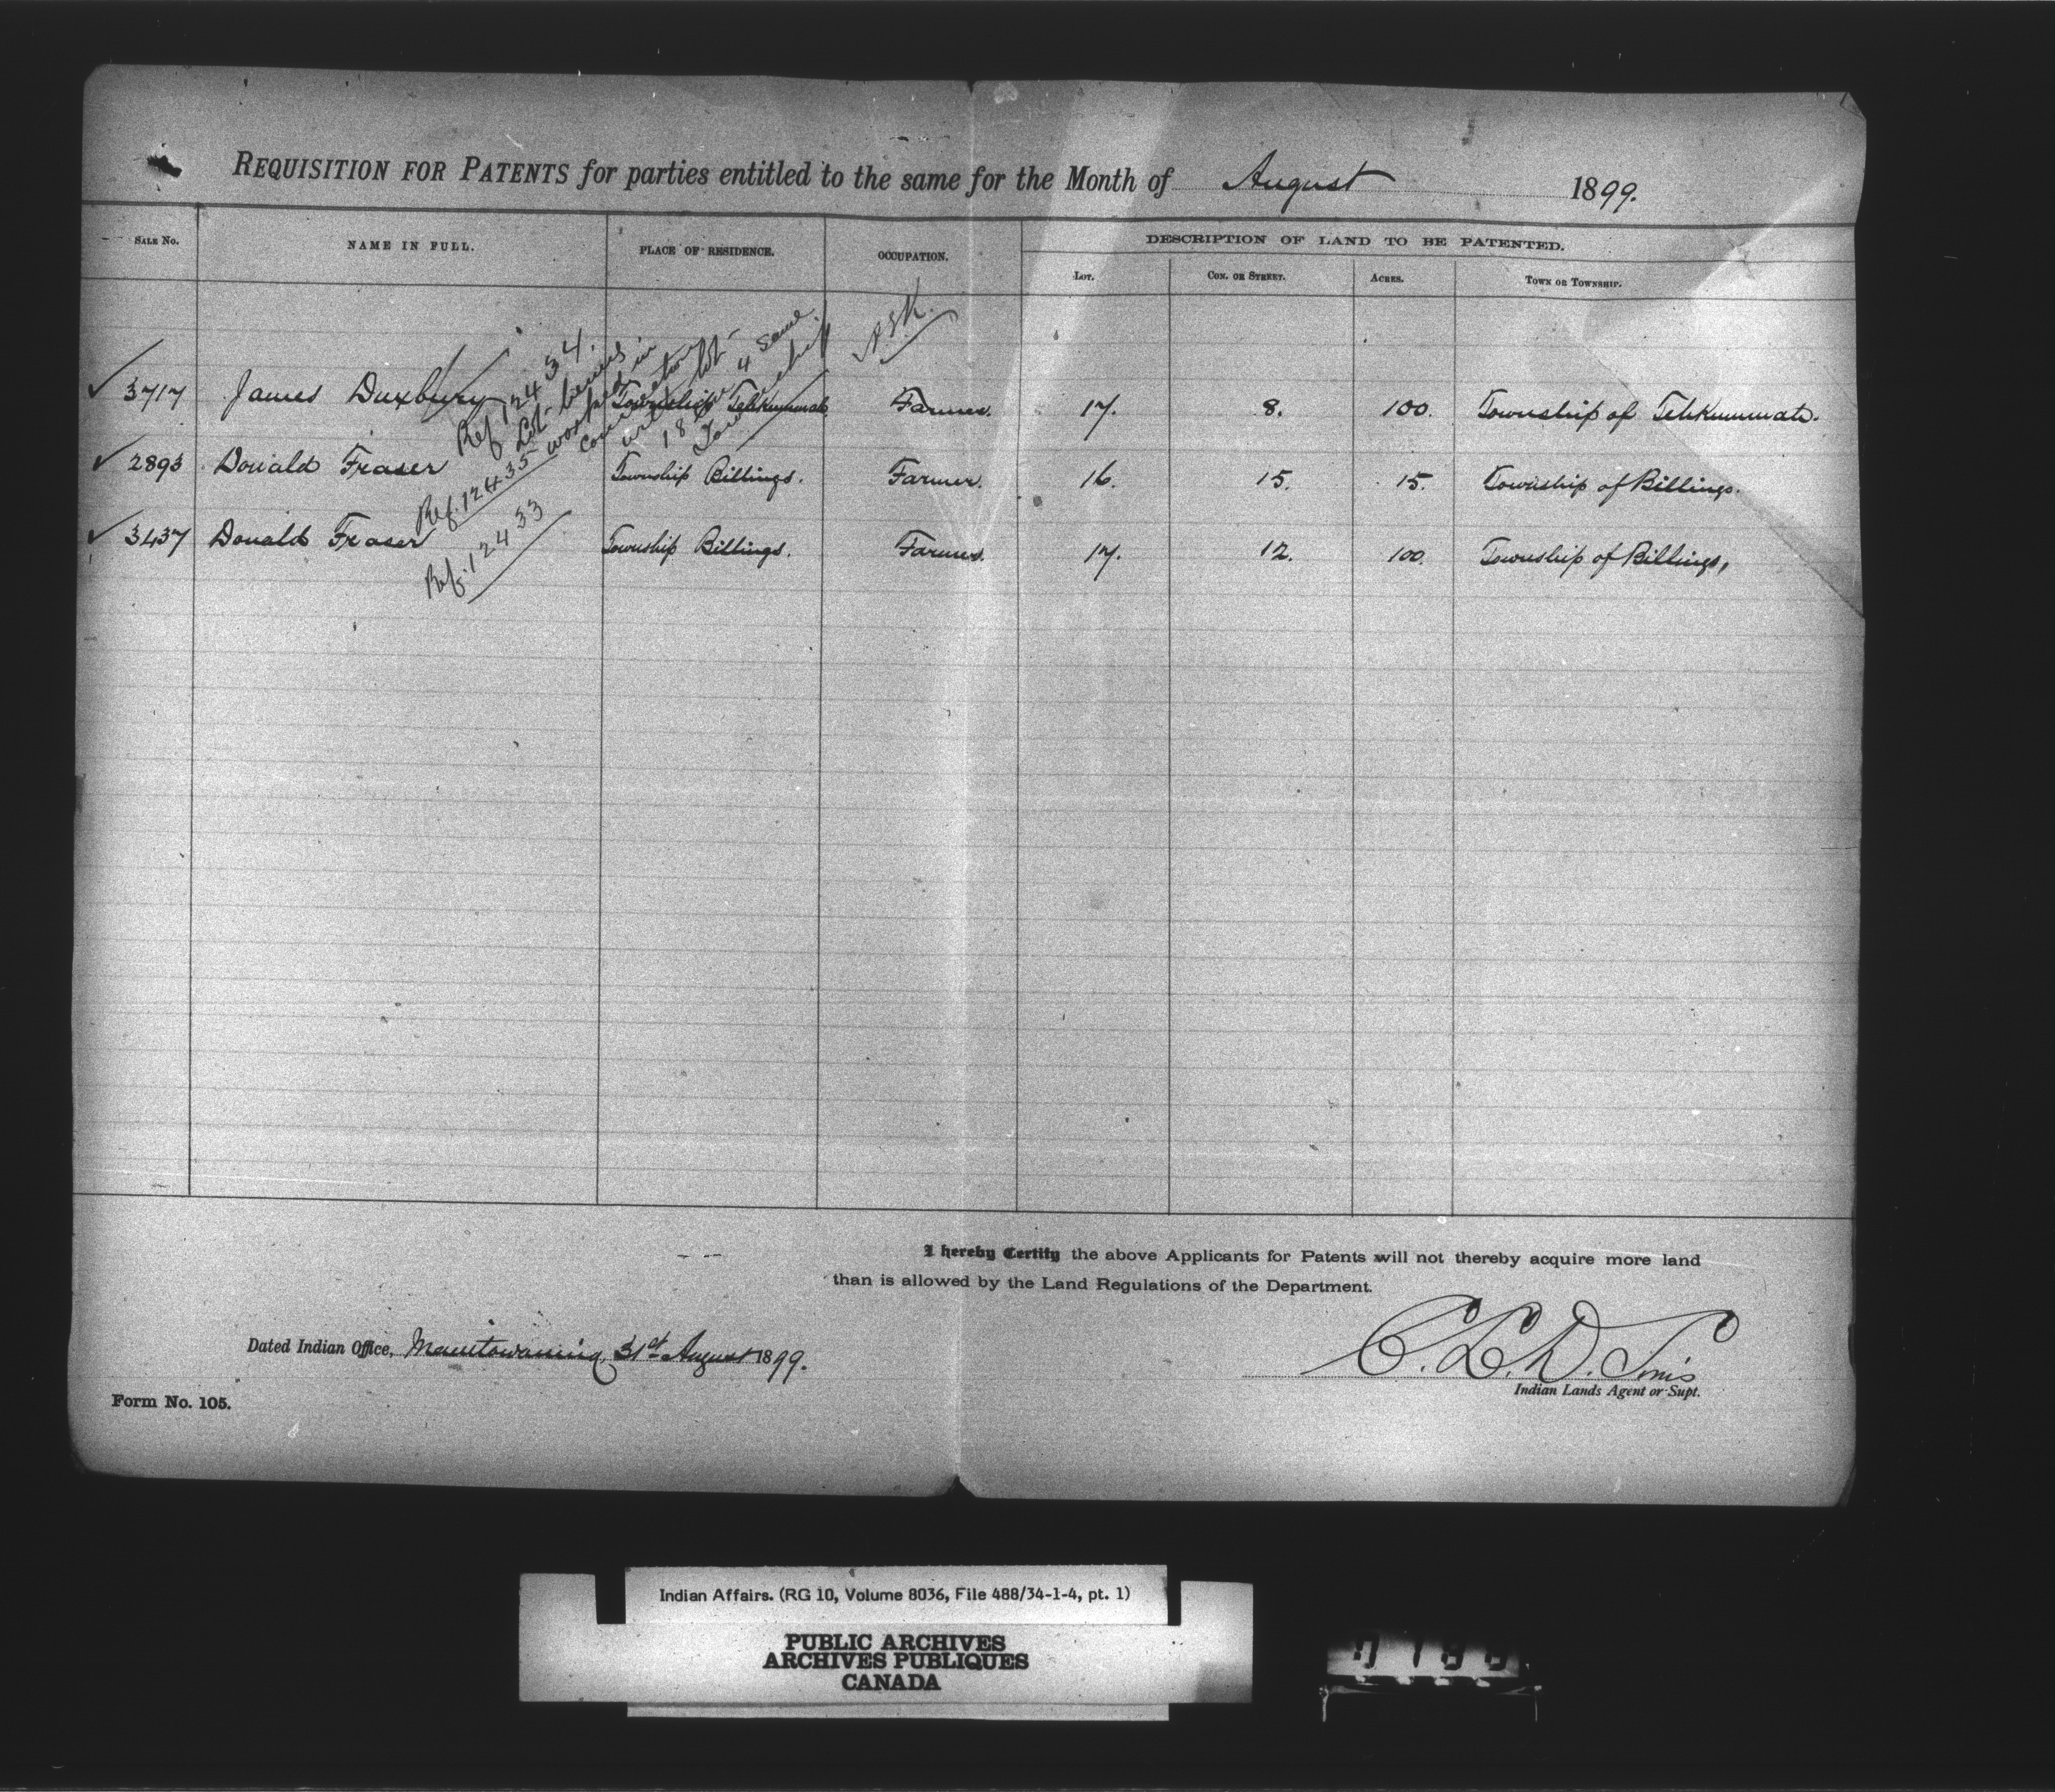 REQUISITION FOR PATENTS for parties entitled to the same for the Month of August 1899.
SALE No. NAME IN FULL. PLACE OF RESIDENCE. OCCUPATION. DESCRIPTION OF LAND TO BE PATENTED.
LOT. CON. OR STREET. ACRES. TOWN OR TOWNSHIP.
✓ 3717 James Duxbury Township Tehkummah Farmer. 17. 8. 100. Township of Tehkummah.
Ref 12434.
Lot being
worked in
with lot
18 4 same
Township
✓ 2893 Donald Fraser Township Billings. Farmer. 16. 15. 15. Township of Billings.
Ref. 12435
✓ 3437 Donald Fraser Township Billings. Farmer. 17. 12. 100. Township of Billings,
Ref. 12433
I hereby Certify the above Applicants for Patents will not thereby acquire more land
than is allowed by the Land Regulations of the Department.
Dated Indian Office, Manitowaning, 31st August 1899.
C. L. D. Sims
Indian Lands Agent or Supt.
Form No. 105.
Indian Affairs. (RG 10, Volume 8036, File 488/34-1-4, pt. 1)
PUBLIC ARCHIVES
ARCHIVES PUBLIQUES
CANADA